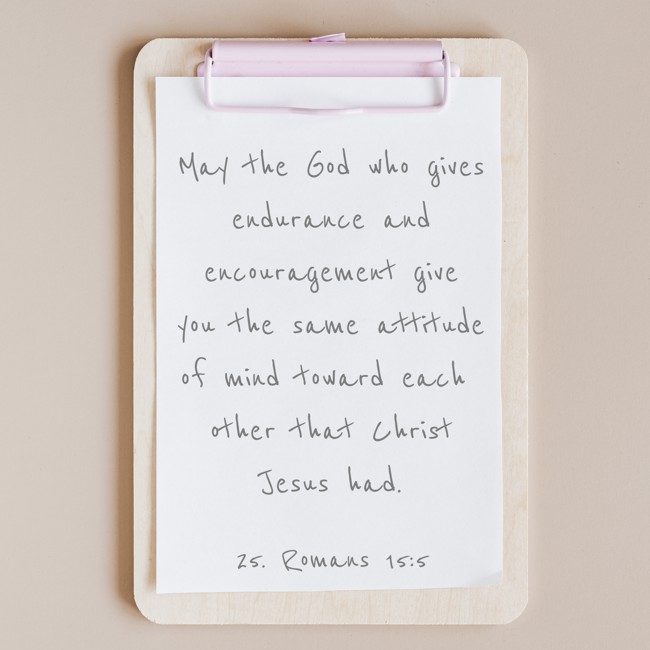 May the God who gives
endurance and
encouragement give
you the same attitude
of mind toward each
other that Christ
Jesus had.
25. Romans 15:5